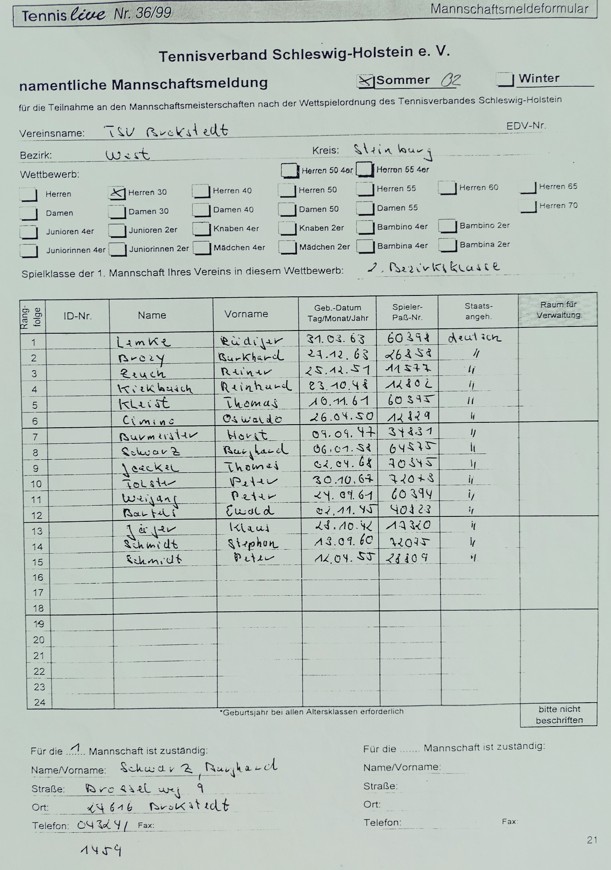 Tennis live Nr. 36/99 Mannschaftsmeldeformular
Tennisverband Schleswig-Holstein e. V.
namentliche Mannschaftsmeldung Sommer 02 Winter
für die Teilnahme an den Mannschaftsmeisterschaften nach der Wettspielordnung des Tennisverbandes Schleswig-Holstein
Vereinsname: TSV Brokstedt EDV-Nr.
Bezirk: West Kreis: Steinburg
Wettbewerb: Herren 50 4er Herren 55 4er
Herren Herren 30 Herren 40 Herren 50 Herren 55 Herren 60 Herren 65
Damen Damen 30 Damen 40 Damen 50 Damen 55 Herren 70
Junioren 4er Junioren 2er Knaben 4er Knaben 2er Bambino 4er Bambino 2er
Juniorinnen 4er Juniorinnen 2er Mädchen 4er Mädchen 2er Bambina 4er Bambina 2er
Spielklasse der 1. Mannschaft Ihres Vereins in diesem Wettbewerb: 2. Bezirksklasse
Rang-folge ID-Nr. Name Vorname Geb.-Datum Tag/Monat/Jahr Spieler-Paß-Nr. Staats-angeh. Raum für Verwaltung
1 Lemke Rüdiger 31.03.63 60398 deutsch
2 Brozy Burkhard 27.12.63 26858 "
3 Zeuch Reiner 25.12.51 11577 "
4 Kiekbusch Reinhard 23.10.48 12802 "
5 Kleist Thomas 10.11.61 60395 "
6 Cimino Oswaldo 26.04.50 12829 "
7 Burmeister Horst 09.09.47 34831 "
8 Schwarz Burghard 06.01.58 64575 "
9 Joeckel Thomas 02.04.68 70545 "
10 Peter 30.10.67 "
11 Weigang Peter 24.04.61 60394 "
12 Bartels Ewald 02.11.45 40823 "
13 Jäger Klaus 28.10.42 17320 "
14 Schmidt Stephan 13.09.60 72075 "
15 Schmidt Peter 12.04.55 28809 "
16
17
18
19
20
21
22
23
24
*Geburtsjahr bei allen Altersklassen erforderlich bitte nicht beschriften
Für die 1. Mannschaft ist zuständig: Für die ...... Mannschaft ist zuständig:
Name/Vorname: Schwarz, Burghard Name/Vorname:
Straße: weg 9 Straße:
Ort: 24616 Brokstedt Ort:
Telefon: 04324/ Fax: Telefon: Fax:
1459
21